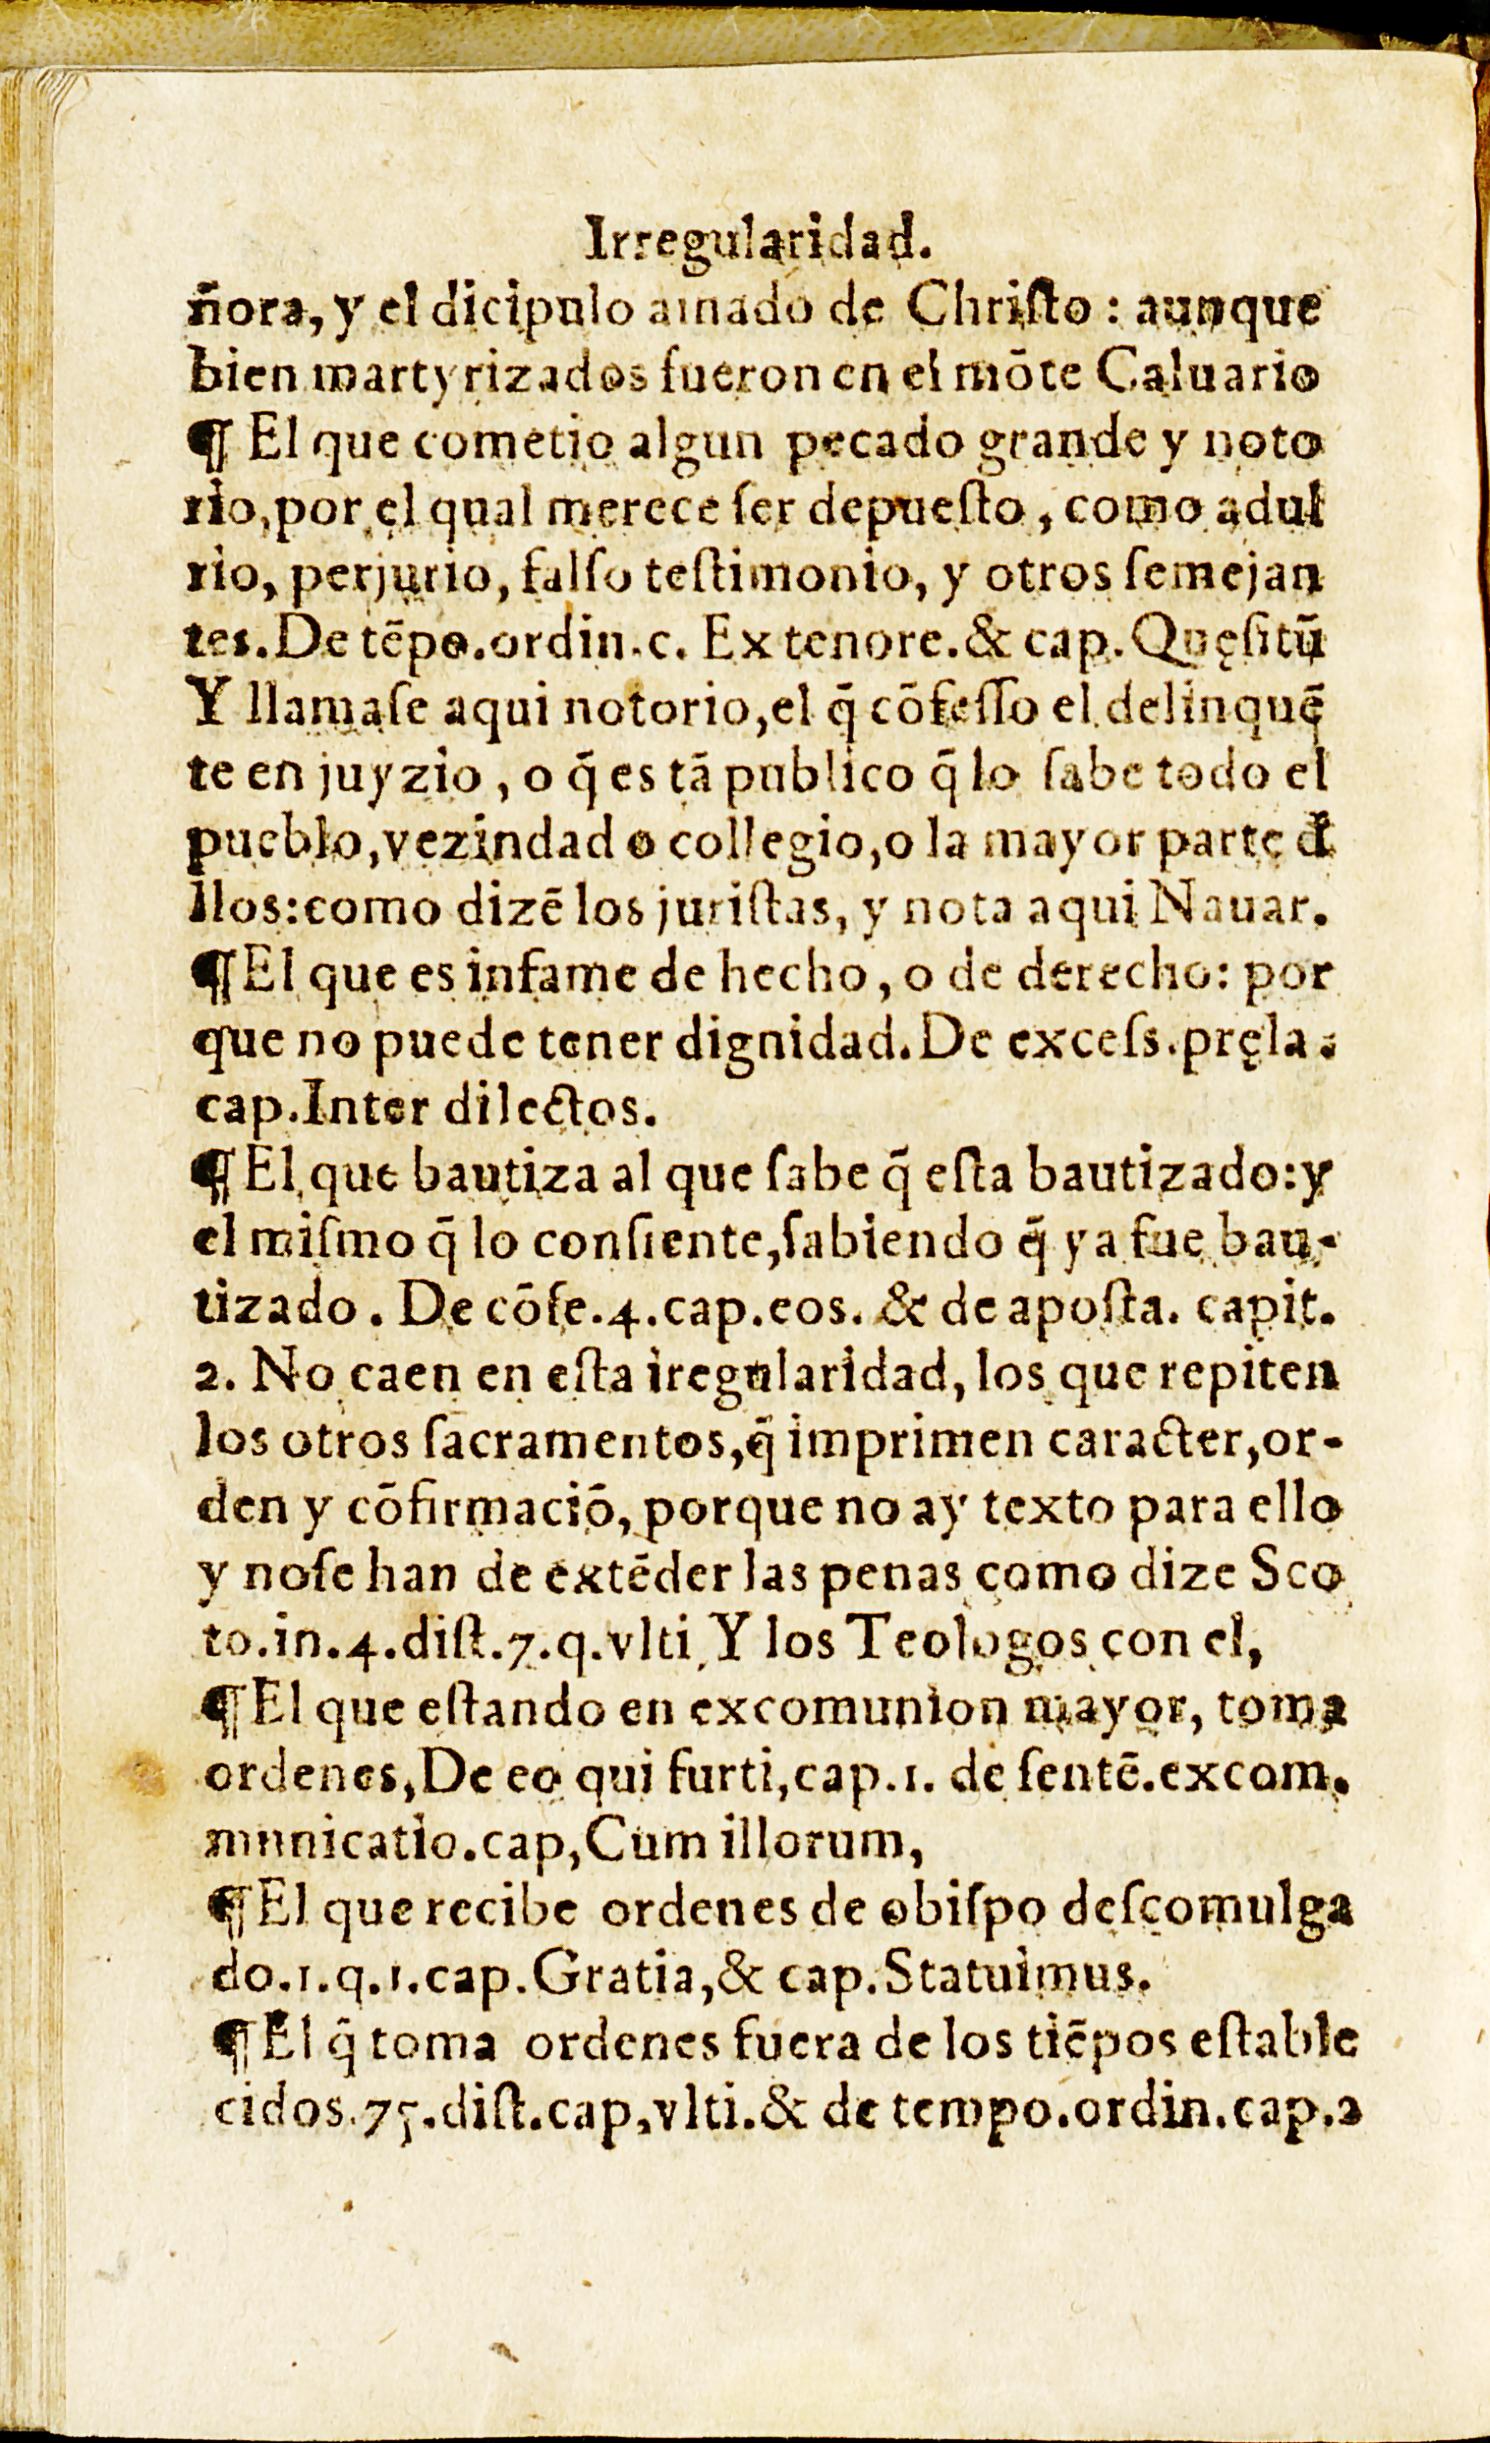 Irregularidad.
ñora, y el dicipulo amado de Chriſto : aunque
bien martyrizados fueron en el mōte Caluario
¶ El que cometio algun pecado grande y noto
rio, por el qual merece ſer depueſto, como adul
rio, perjurio, falſo teſtimonio, y otros ſemejan
tes. De tēpo. ordin. c. Ex tenore. & cap. Quęſitū
Y llamaſe aqui notorio, el q̄ cōfeſſo el delinquē
te en juyzio, o q̄ es tā publico q̄ lo ſabe todo el
pueblo, vezindad o collegio, o la mayor parte đ
llos: como dizē los juriſtas, y nota aqui Nauar.
¶ El que es infame de hecho, o de derecho: por
que no puede tener dignidad. De exceſs. pręla.
cap. Inter dilectos.
¶ El que bautiza al que ſabe q̄ eſta bautizado: y
el miſmo q̄ lo conſiente, ſabiendo q̄ ya fue bau-
tizado. De cōſe. 4. cap. eos. & de apoſta. capit.
2. No caen en eſta iregularidad, los que repiten
los otros ſacramentos, q̄ imprimen caracter, or-
den y cōfirmaciō, porque no ay texto para ello
y noſe han de extēder las penas como dize Sco
to. in. 4. diſt. 7. q. vlti, Y los Teologos con el,
¶ El que eſtando en excomunion mayor, toma
ordenes, De eo qui furti, cap. 1. de ſentē. excom.
municatio. cap, Cum illorum,
¶ El que recibe ordenes de obiſpo deſcomulga
do. 1. q. 1. cap. Gratia, & cap. Statuimus.
¶ El q̄ toma ordenes fuera de los tiēpos eſtable
cidos. 75. diſt. cap, vlti. & de tempo. ordin. cap. 2